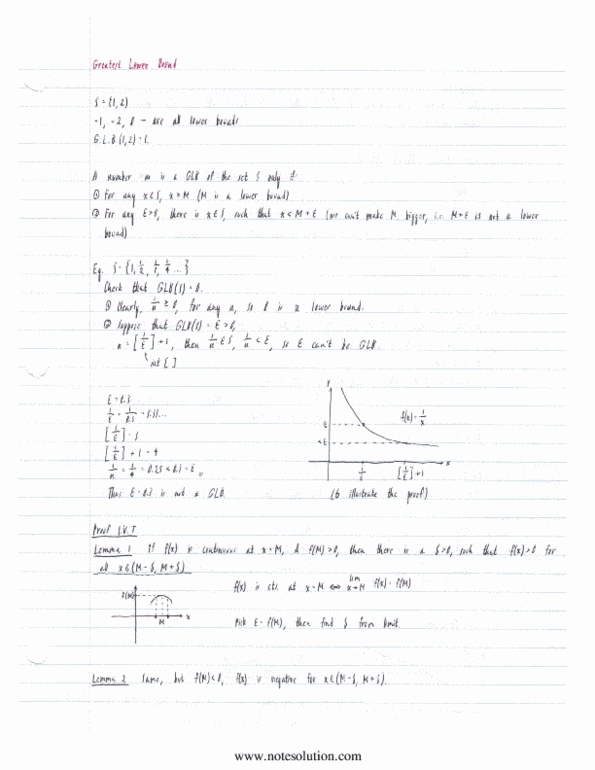 Greatest Lower Bound
S = (1,2)
-1, -2, 0 - are all lower bounds
G.L.B.(1,2) = 1.
A number m is a GLB of the set S only if:
① For any x∈S, x ≥ M (M is a lower bound)
② For any ε>0, there is x∈S, such that x < M+ε (we can't make M bigger, i.e. M+ε is not a lower
bound)
Eg. S = {1, 1/2, 1/3, 1/4 ...}
Check that GLB(S) = 0.
① Clearly, 1/n ≥ 0, for any n, so 0 is a lower bound.
② Suppose that GLB(S) = ε > 0,
n = [1/ε] + 1, then 1/n ∈ S, 1/n < ε, so ε can't be GLB.
int [ ]
ε = 0.3
1/ε = 1/0.3 = 3.33...
[1/ε] = 3
[1/ε] + 1 = 4
1/n = 1/4 = 0.25 < 0.3 = ε
Thus ε = 0.3 is not a GLB.
y
f(x) = 1/x
ε
<ε
x
1/ε
[1/ε]+1
(to illustrate the proof)
Proof I.V.T
Lemma 1 If f(x) is continuous at x=M, & f(M)>0, then there is a δ>0, such that f(x)>0 for
all x∈(M-δ, M+δ)
f(x) is cts. at x=M ⟺ lim x→M f(x) = f(M)
f(M)
M
x
Pick ε = f(M), then find δ from limit.
Lemma 2 Same, but f(M)<0, f(x) is negative for x∈(M-δ, M+δ).
www.notesolution.com